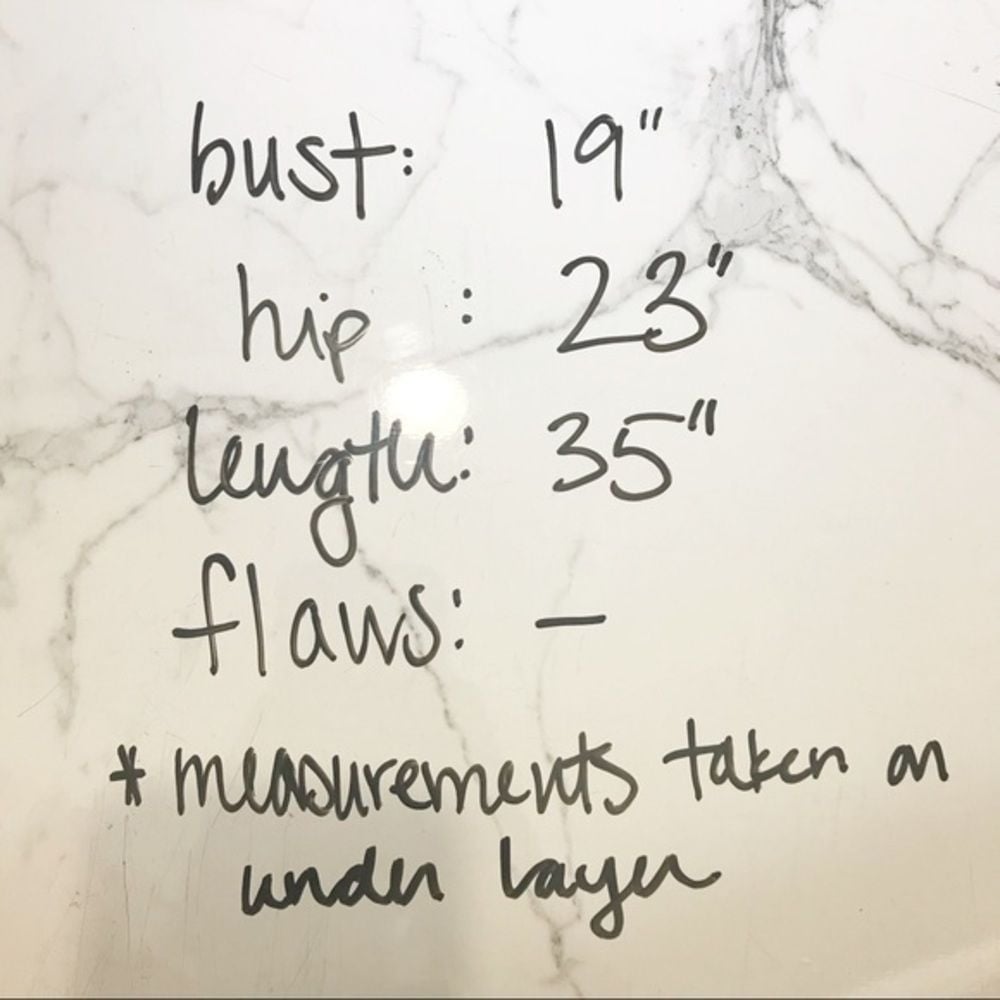 bust: 19"
hip : 23"
length: 35"
flaws: —
* measurements taken on
under layer